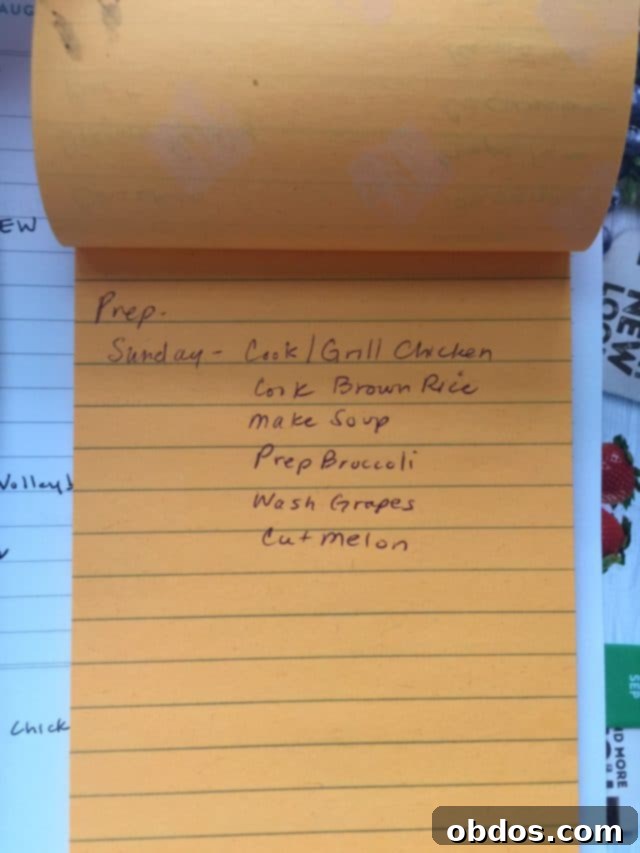 AUG
EW
Prep.
Sunday - Cook/Grill Chicken
Cook Brown Rice
Make Soup
Prep Broccoli
Wash Grapes
Cut Melon
Volleyb
Chick
NEW
LOO
SEP
ND MORE
obdos.com